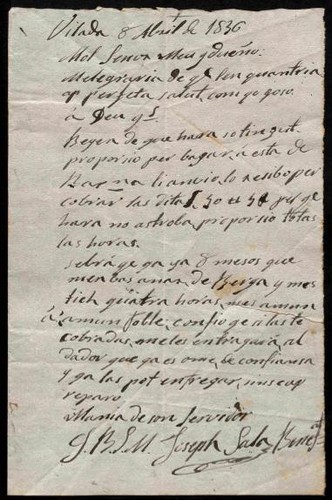 Vilada 8 Abril de 1836
Mol Senor Meu y dueño.
Malegraria de qe len quantria
ap perfeta salut, com yo goso.
a Deu gs.
Begen de que hara so tingut
proporsio per bagar á esta de
Barna li anvio lo resibo per
cobrar las ditas 50 ll pus qe
hara no as troba proporsio totas
las horas.
Sabra qe ga ya 8 mesos que
me nbas anar de Berga y mes
tich quatra horas, mes amun
á amun poble confio qe si las te
cobradas, me les entragaria al
dador que ya es ome de confiansa
y ga las pot entregar, mes cap
reparo
Mania de son Servidor
Q.B.S.M. Joseph Sala